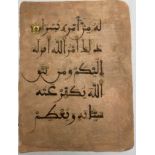 له من أمره يسرا
ذلك أمر الله أنزله
إليكم ومن يتق
الله يكفر عنه
سيئاته ويعظم